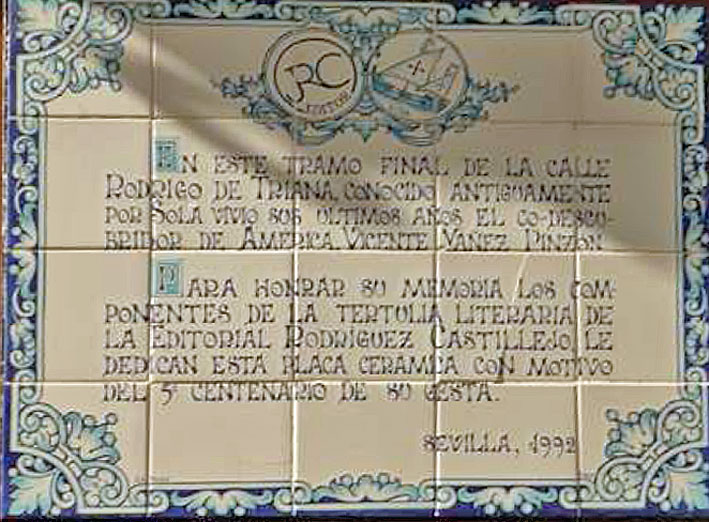 RC
EDITOR
EN ESTE TRAMO FINAL DE LA CALLE
RODRIGO DE TRIANA, CONOCIDO ANTIGUAMENTE
POR SOLA VIVIO SUS ULTIMOS AÑOS EL CO-DESCU-
BRIDOR DE AMERICA, VICENTE YAÑEZ PINZON.
PARA HONRAR SU MEMORIA LOS COM-
PONENTES DE LA TERTULIA LITERARIA DE
LA EDITORIAL RODRIGUEZ CASTILLEJO, LE
DEDICAN ESTA PLACA CERAMICA CON MOTIVO
DEL 5º CENTENARIO DE SU GESTA.
SEVILLA, 1992